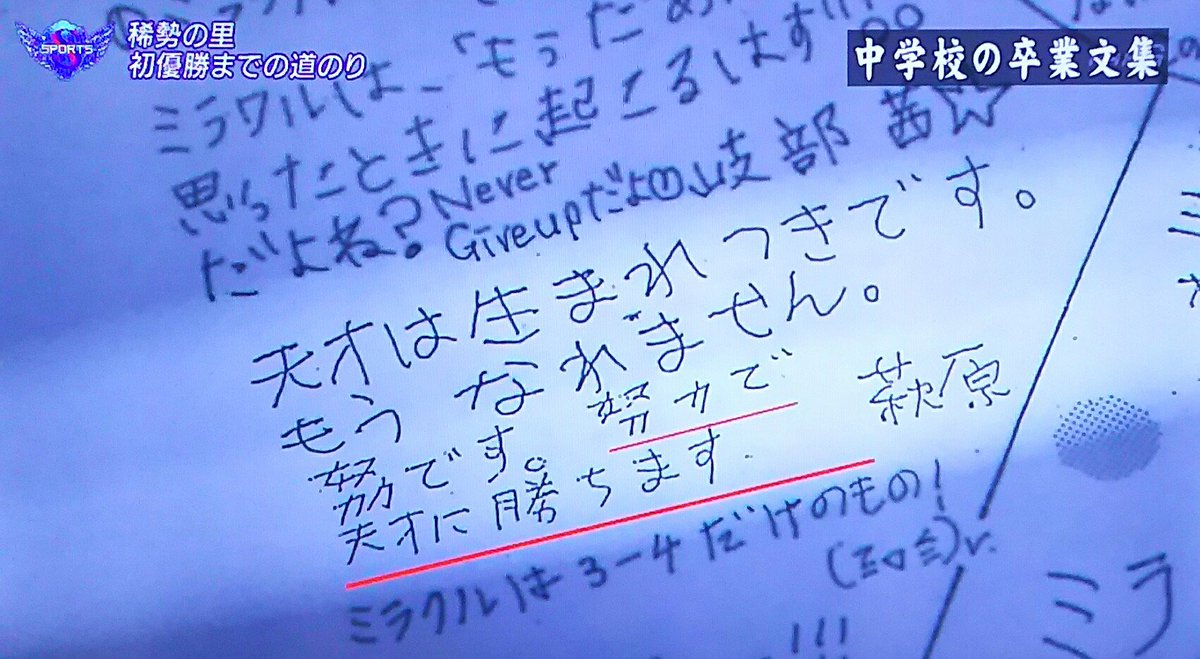 SPORTS
稀勢の里
初優勝までの道のり
中学校の卒業文集
ミラクルは、「もうだめ
思ったときに起こるはず!!!
だよね?Never
Giveupだよ
岐部 茜☆
天才は生まれつきです。
もうなれません。
努です。努力で
天才に勝ちます
萩原
ミラクルは3-4だけのもの!
ミラ
!!!